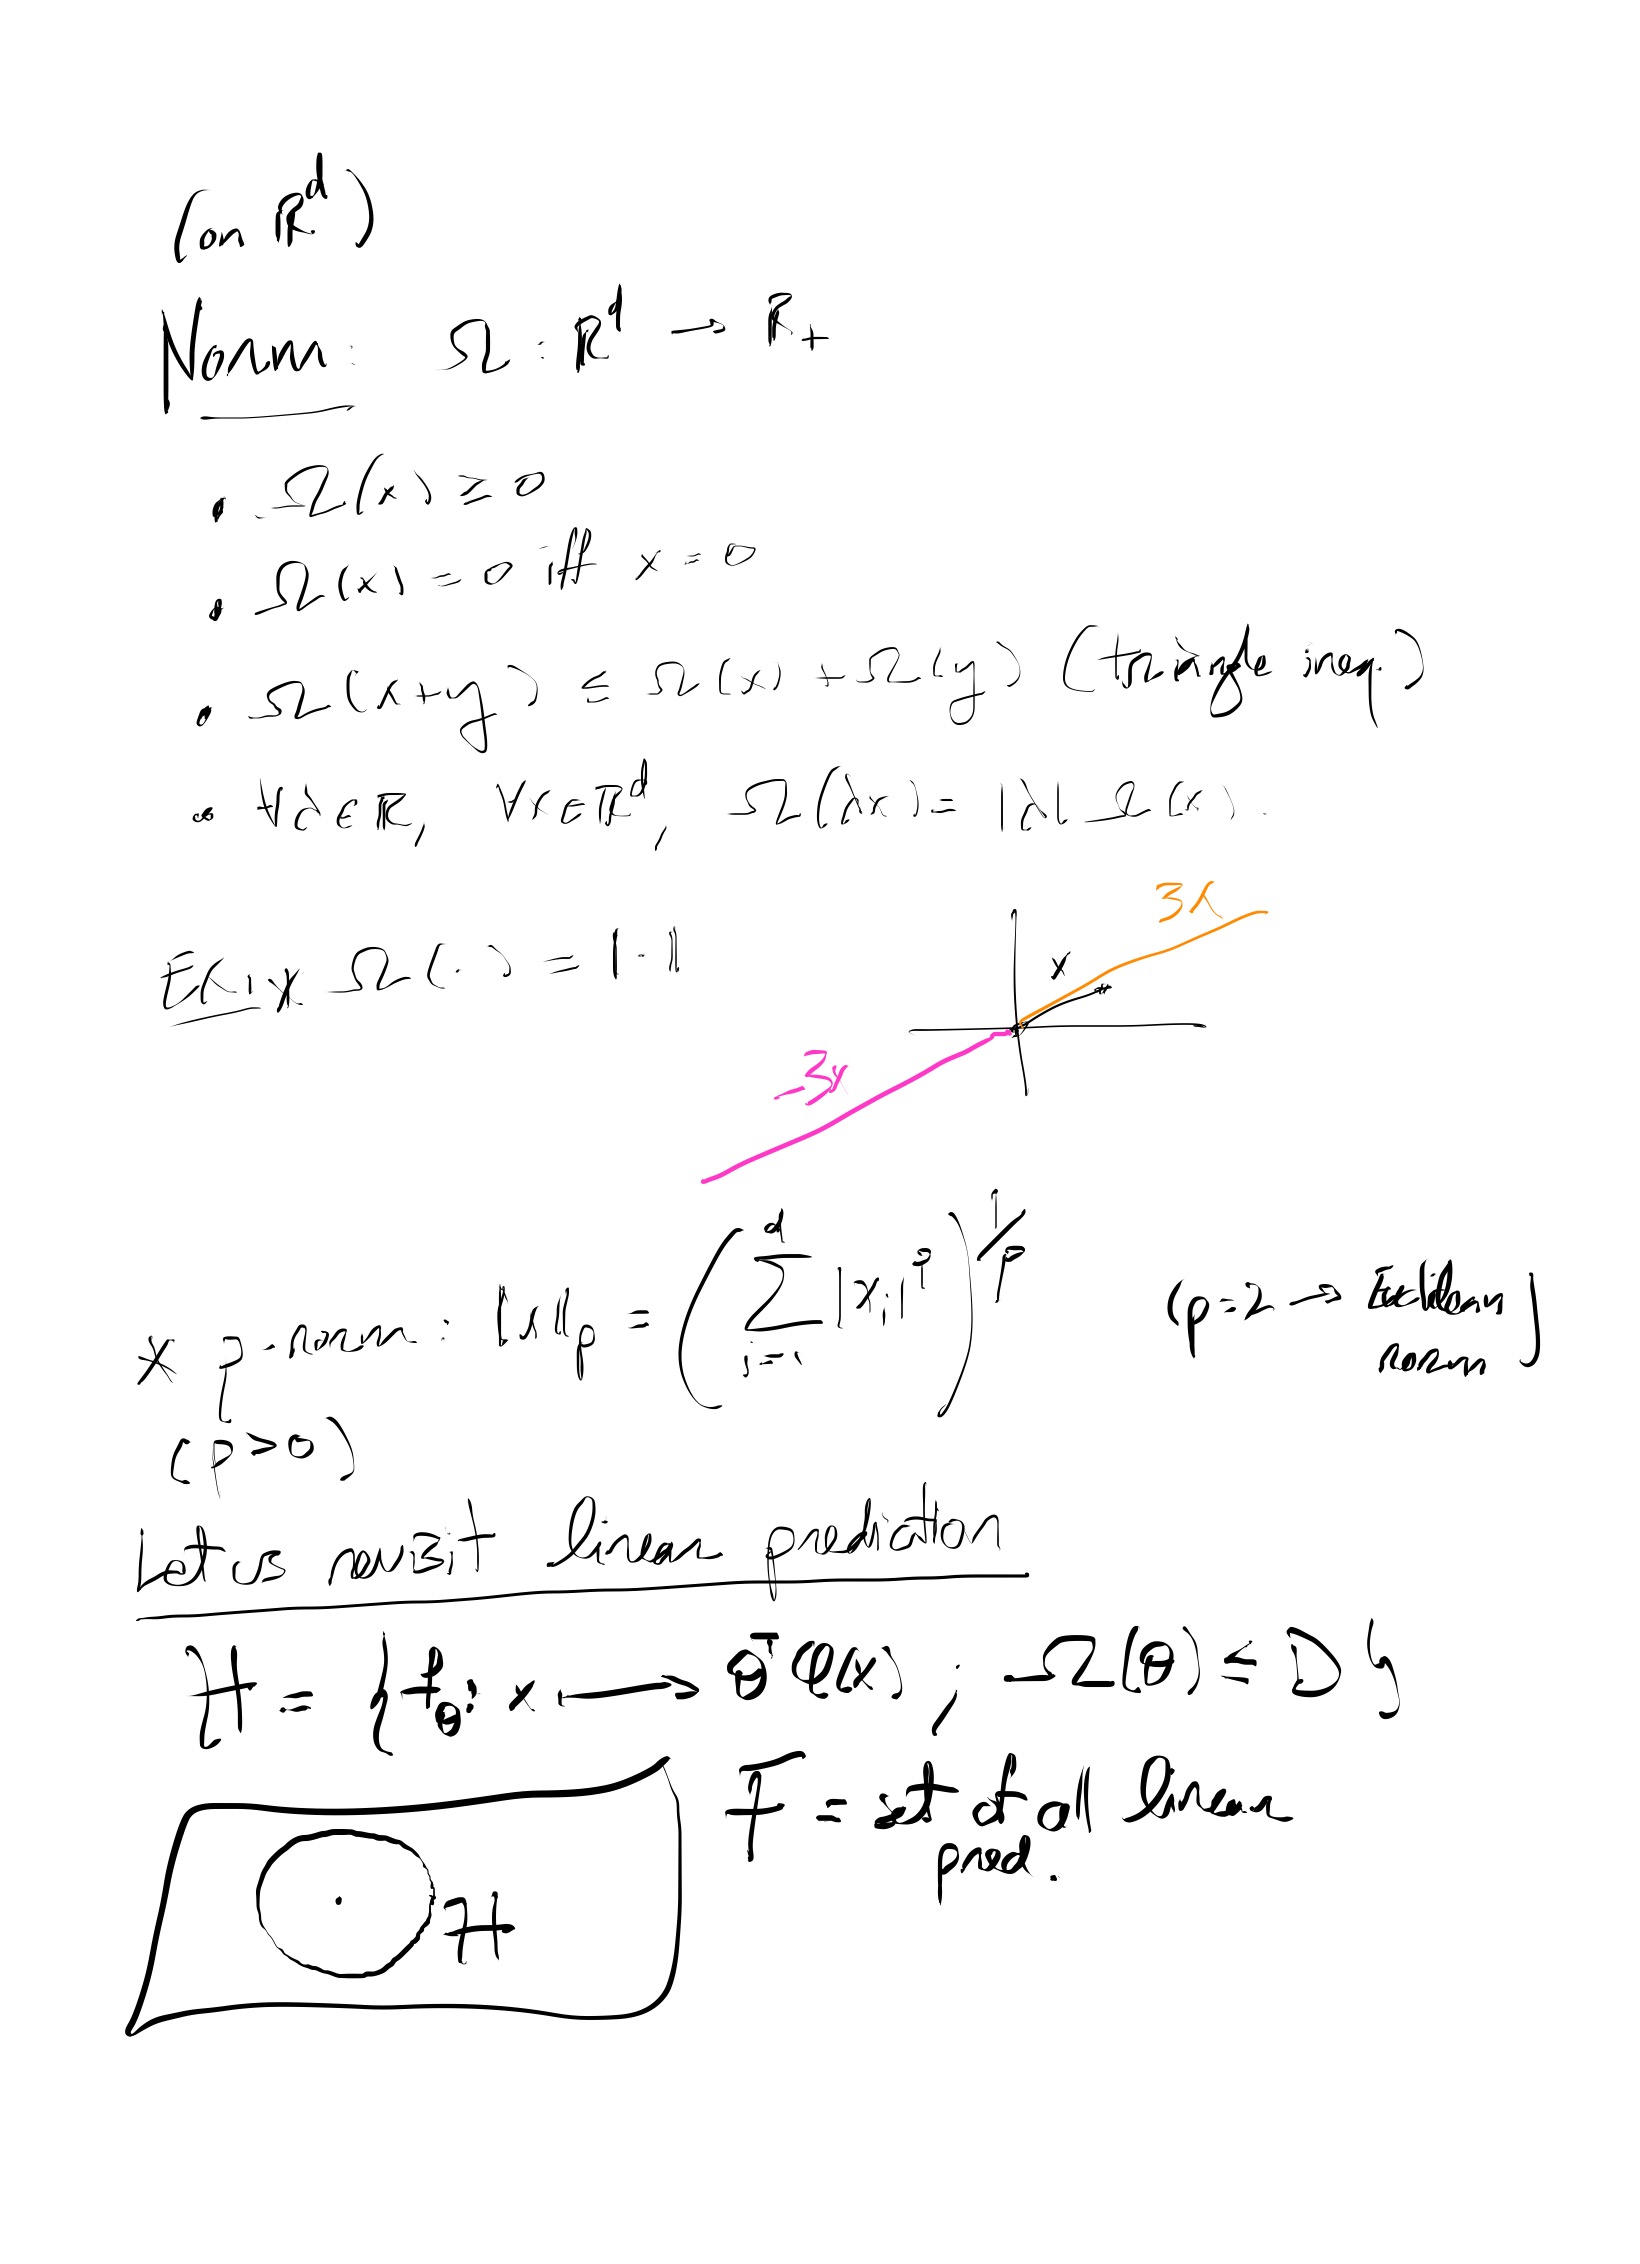 (on ℝ^d)
Norm: Ω : ℝ^d → ℝ_+
• Ω(x) ≥ 0
• Ω(x) = 0 iff x = 0
• Ω(x+y) ≤ Ω(x) + Ω(y) (triangle ineq.)
• ∀λ∈ℝ, ∀x∈ℝ^d, Ω(λx) = |λ| Ω(x).
3x
x
Ex: * Ω(.) = ‖·‖
-3x
* p-norm: ‖x‖_p = (∑_{i=1}^{d} |x_i|^p)^{1/p} (p=2 → Euclidean
norm)
(p>0)
Let us revisit linear prediction
H = { f_θ: x ⟼ θ^T φ(x) ; Ω(θ) ≤ D }
F = set of all linear
pred.
H